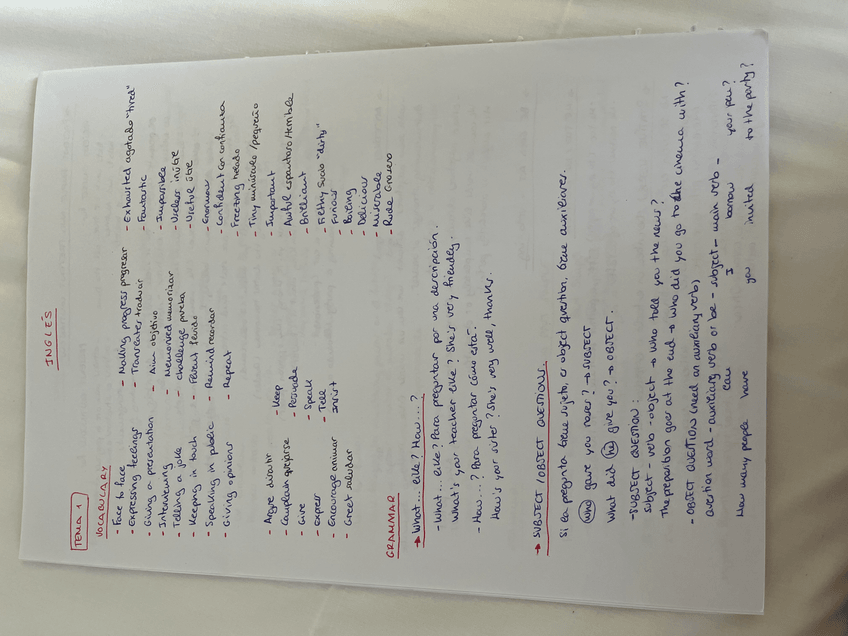 INGLÉS
TEMA 1
VOCABULARY
- Face to face
- Expressing feelings
- Giving a presentation
- Interviewing
- Telling a joke
- Keeping in touch
- Speaking in public
- Giving opinions
- Making progress progresar
- Translate traducir
- Aim objetivo
- Memorised memorizar
- challenge prueba
- Fluent fluido
- Remind recordar
- Repeat
- Exhausted agotado "tired"
- Fantastic
- Impossible
- Useless inútil
- Useful útil
- Enormous
- Confident con confianza
- Freezing helado
- Tiny minúsculo/pequeño
- Important
- Awful espantoso/terrible
- Brilliant
- Filthy Sucio "dirty"
- Furious
- Boring
- Delicious
- Miserable
- Rude Grosero
- Argue discutir
- Complain quejarse
- Give
- express
- Encourage animar
- Greet saludar
- Keep
- Persuade
- Speak
- Tell
Insist
GRAMMAR
→ What... like? How...?
- What... like? Para preguntar por una descripción.
What's your teacher like? She's very friendly.
- How...? Para preguntar cómo está.
How's your sister? She's very well, thanks.
→ SUBJECT / OBJECT QUESTIONS.
Si la pregunta tiene sujeto, es object question, tiene auxiliares.
Who gave you roses? → SUBJECT
What did he give you? → OBJECT.
- SUBJECT QUESTION:
subject - verb - object → Who told you the news?
The preposition goes at the end → Who did you go to the cinema with?
- OBJECT QUESTION (need an auxiliary verb)
Question word - auxiliary verb or be - subject - main verb -
can I borrow your pen?
How many people have you invited to the party?